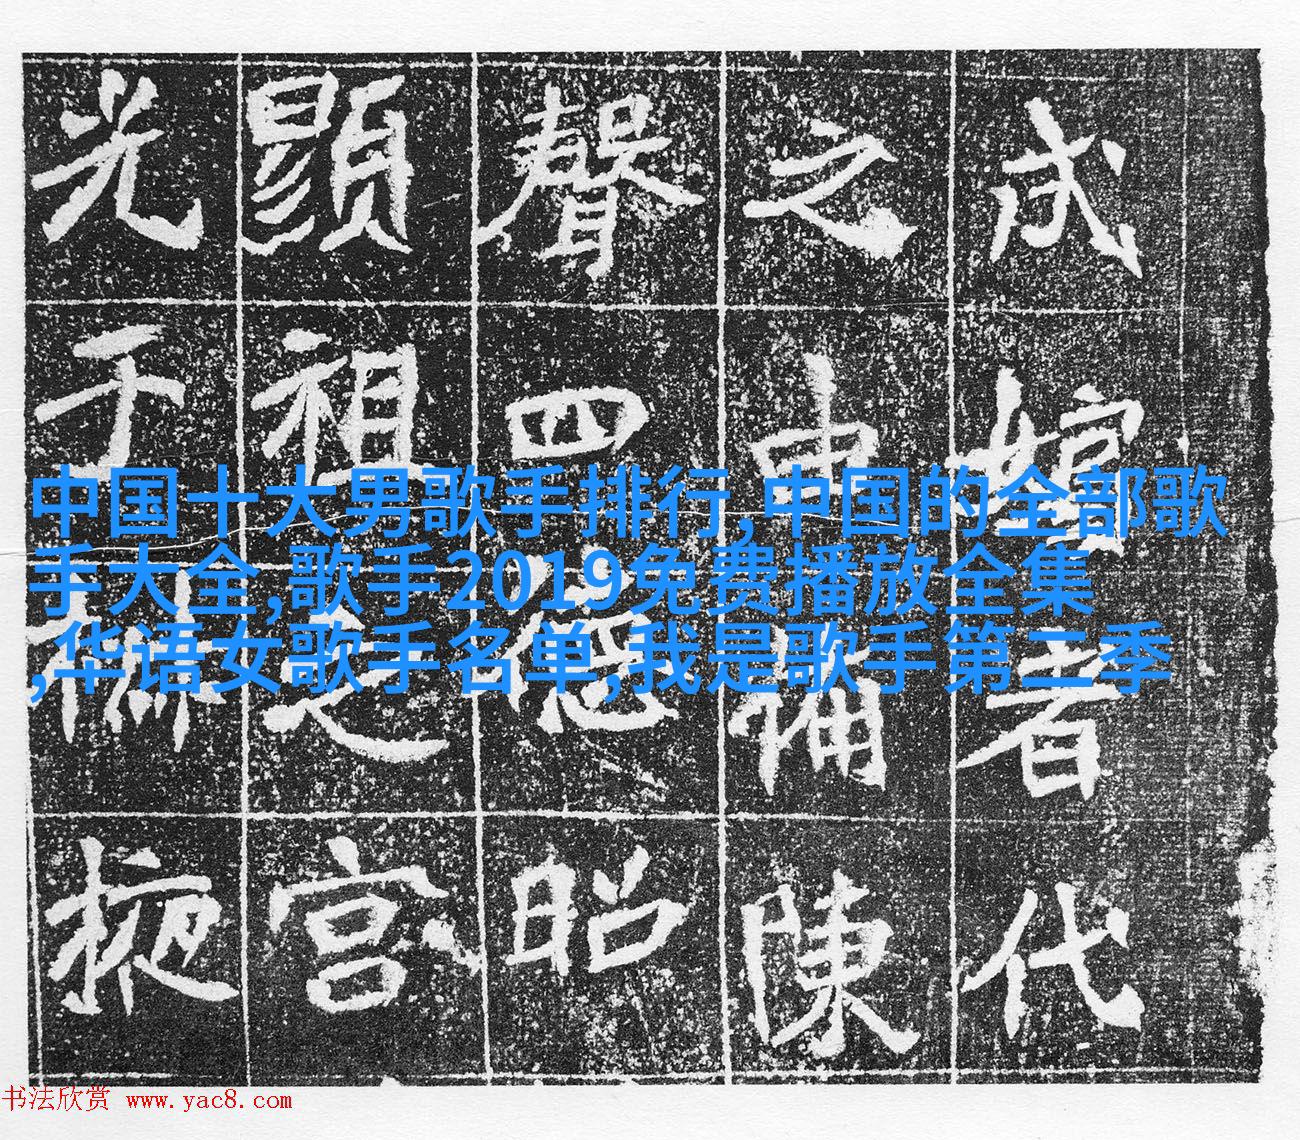 者代
之申備陳
聲四德昭
顯祖之宮
光于掖
中国十大男歌手排行,中国的全部歌
手大全,歌手2019免费播放全集
,华语女歌手名单,我是歌手第二季
书法欣赏 www.yac8.com